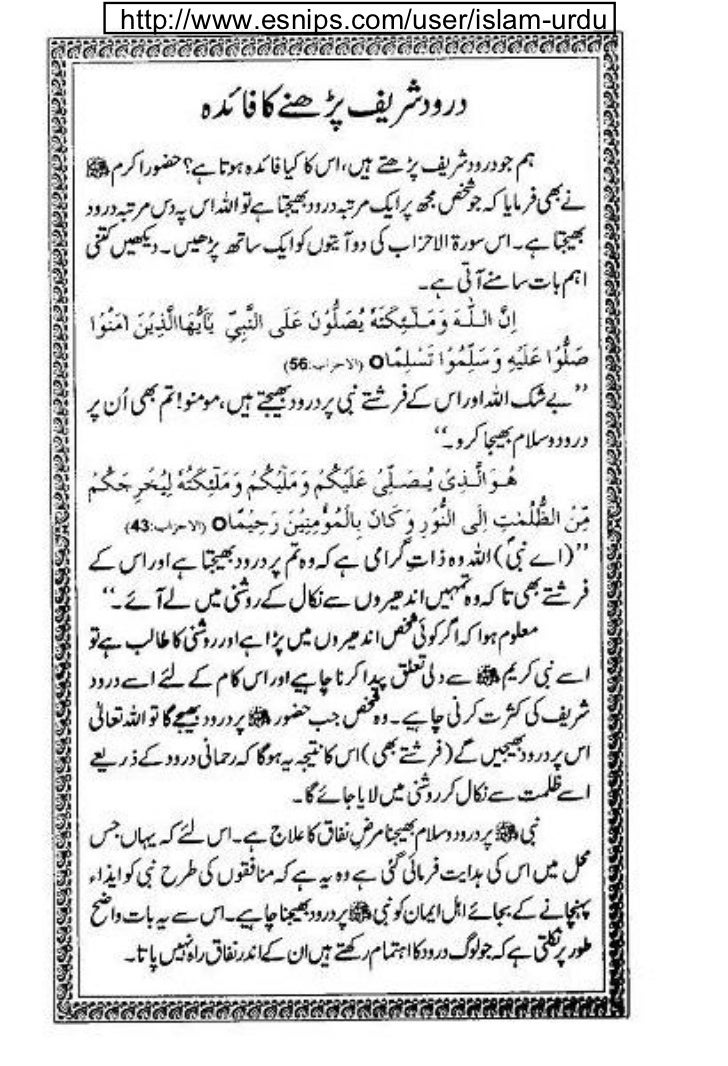 http://www.esnips.com/user/islam-urdu
درود شریف پڑھنے کا فائدہ
ہم جو درود شریف پڑھتے ہیں، اس کا کیا فائدہ ہوتا ہے؟ حضور اکرم ﷺ
نے بھی فرمایا کہ جو شخص مجھ پر ایک مرتبہ درود بھیجتا ہے تو اللہ اس پہ دس مرتبہ درود
بھیجتا ہے۔ اس سورۃ الاحزاب کی دو آیتوں کو ایک ساتھ پڑھیں۔ دیکھیں کتنی
اہم بات سامنے آتی ہے۔
اِنَّ اللّٰہَ وَمَلٰٓئِکَتَہٗ یُصَلُّوْنَ عَلَی النَّبِیِّ یٰٓاَیُّھَا الَّذِیْنَ اٰمَنُوْا
صَلُّوْا عَلَیْہِ وَسَلِّمُوْا تَسْلِمًا o (الاحزاب:56)
’’بے شک اللہ اور اس کے فرشتے نبی پر درود بھیجتے ہیں، مومنو! تم بھی اُن پر
درود و سلام بھیجا کرو۔‘‘
ھُوَ الَّذِیْ یُصَلِّیْ عَلَیْکُمْ وَمَلٰٓیْکُمْ وَمَلٰٓئِکَتُہٗ لِیُخْرِجَکُمْ
مِّنَ الظُّلُمٰتِ اِلَی النُّوْرِ وَکَانَ بِالْمُؤْمِنِیْنَ رَحِیْمًا o (الاحزاب:43)
’’(اے نبیؐ) اللہ وہ ذاتِ گرامی ہے کہ وہ تم پر درود بھیجتا ہے اور اس کے
فرشتے بھی تا کہ وہ تمہیں اندھیروں سے نکال کے روشنی میں لے آئے۔‘‘
معلوم ہوا کہ اگر کوئی شخص اندھیروں میں پڑا ہے اور روشنی کا طالب ہے تو
اسے نبی کریم ﷺ سے دلی تعلق پیدا کرنا چاہیے اور اس کام کے لئے اسے درود
شریف کی کثرت کرنی چاہیے۔ وہ شخص جب حضور ﷺ پر درود بھیجے گا تو اللہ تعالیٰ
اس پر درود بھیجیں گے (فرشتے بھی) اس کا نتیجہ یہ ہوگا کہ رحمانی درود کے ذریعے
اسے ظلمت سے نکال کر روشنی میں لایا جائے گا۔
نبی ﷺ پر درود و سلام بھیجنا مرضِ نفاق کا علاج ہے۔ اس لئے کہ یہاں جس
محل میں اس کی ہدایت فرمائی گئی ہے وہ یہ ہے کہ منافقوں کی طرح نبی کو ایذاء
پہنچانے کے بجائے اہل ایمان کو نبی ﷺ پر درود بھیجنا چاہیے۔ اس سے یہ بات واضح
طور پر نکلتی ہے کہ جو لوگ درود کا اہتمام رکھتے ہیں ان کے اندر نفاق راہ نہیں پاتا۔